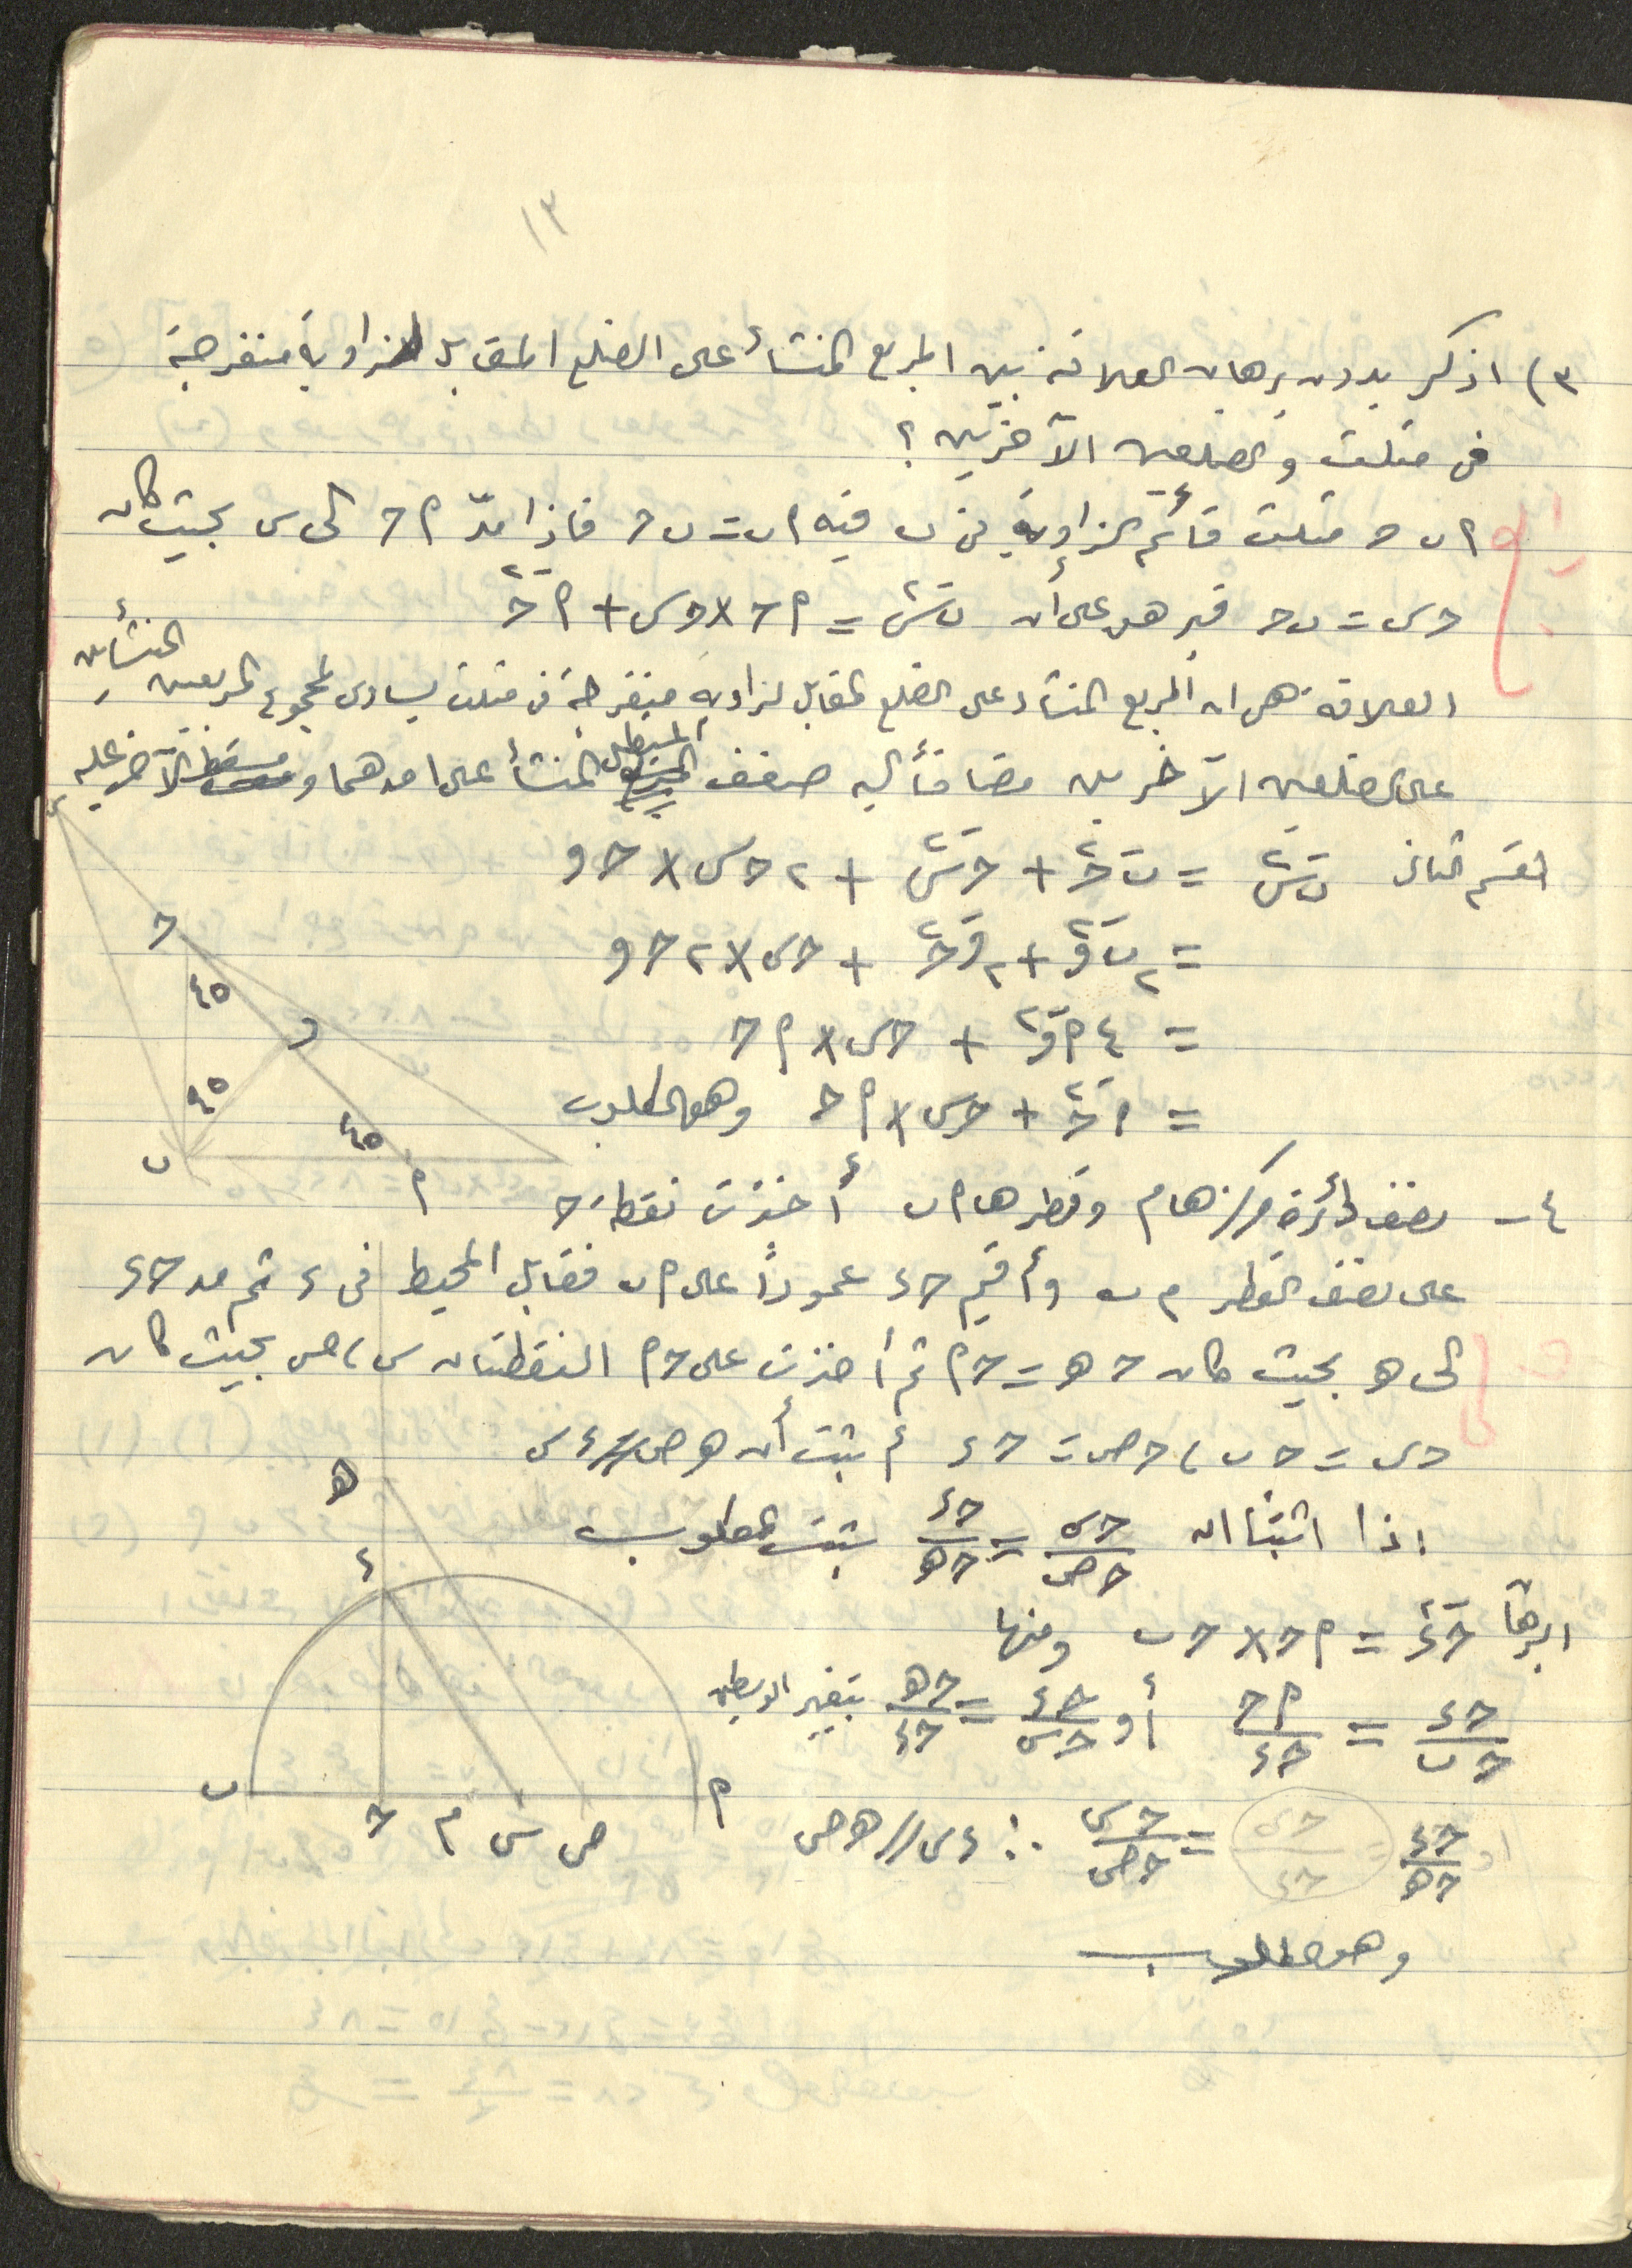 ١٣
٣) اذكر بدون برهان العلاقة بين المربع المنشأ على الضلع المقابل لزاوية منفرجة
فى مثلث والضلعين الآخرين ؟
م ب ح مثلث قائم الزاوية فى ب فيه م ب = ب ح فاذا مدّ م ح الى س بحيث كان
ح س = ب ح فبرهن على أن ب س٢ = م ح × ح س + م ح٢
العلاقة هى ان المربع المنشأ على الضلع المقابل لزاوية منفرجة فى مثلث يساوى مجموع المربعين المنشأين
على الضلعين الآخرين مضافاً اليه ضعف المستطيل المنشأ على احدهما ومسقط الآخر عليه
القسم الثانى ب س٢ = ب ح٢ + ح س٢ + ٢ ح س × ح و
= ٢ ب و٢ + ٢ و ح٢ + ح س × ٢ ح و
= ٤ م و٢ + ح س × م ح
= م ح٢ + ح س × م ح وهو المطلوب
س
ح
٤٥
و
٤٥
٤٥
ب
م
٤ - نصف دائرة مركزها م وقطرها م ب أخذت نقطة ح
على نصف القطر م ب وأقيم ح ء عموداً على م ب فقابل المحيط فى ء ثم مد ح ء
الى ه بحيث كان ح ه = ح م ثم أخذت على ح م النقطتان س ، ص بحيث كان
ح س = ح ب ، ح ص = ح ء أثبت أن ه ص // ء س
اذا اثبتنا ان ح س / ح ص = ح ء / ح ه يثبت المطلوب
البرهان ح ء٢ = م ح × ح ب ومنها
ح ء / ح ب = م ح / ح ء أو ح ء / ح س = ح ه / ح ء بتغيير الوسطين
او ح ء / ح ه = ح س / ح ء = ح س / ح ص ∴ ء س // ه ص
وهو المطلوب
ه
ء
ب
ح
م
س
ص
م